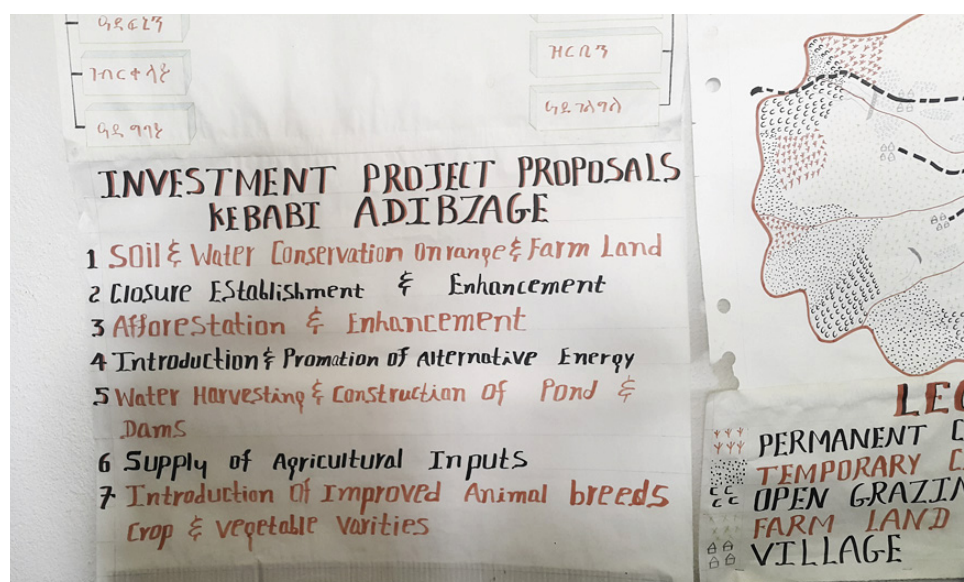 ዓደፊኒን
ገብርተላይ
ዓደ ግባይ
ዝርቢን
ዓደ ገለግለ
INVESTMENT PROJECT PROPOSALS
KEBABI ADIBZAGE
1 Soil & Water Conservation On range & Farm Land
2 Closure Establishment & Enhancement
3 Afforestation & Enhancement
4 Introduction & Promation of Alternative Energy
5 Water Harvesting & Construction Of Pond &
Dams
6 Supply of Agricultural Inputs
7 Introduction Of Improved Animal breeds
Crop & vegetable varities
LEG
PERMANENT C
TEMPORARY C
OPEN GRAZIN
FARM LAND
VILLAGE